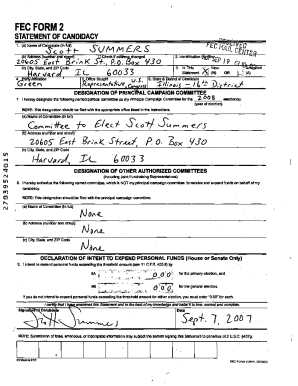 FEC FORM 2
STATEMENT OF CANDIDACY
RECEIVED
FEC MAIL CENTER
1. (a) Name of Candidate (in full)
Scott SUMMERS
(b) Address (number and street) Check if address changed
2. Identification Number
20605 East Brink St., P.O. Box 430
(c) City, State, and ZIP Code
3. Is This Statement New (N) OR Amended (A)
Harvard, IL 60033
4. Party Affiliation
5. Office Sought
6. State & District of Candidate
Green
Representative, U.S. Congress
Illinois - 16th District
DESIGNATION OF PRINCIPAL CAMPAIGN COMMITTEE
7. I hereby designate the following named political committee as my Principal Campaign Committee for the 2008 election(s).
(year of election)
NOTE: This designation should be filed with the appropriate office listed in the instructions.
(a) Name of Committee (in full)
Committee to Elect Scott Summers
(b) Address (number and street)
20605 East Brink Street, P.O. Box 430
(c) City, State, and ZIP Code
Harvard, IL 60033
DESIGNATION OF OTHER AUTHORIZED COMMITTEES
(Including Joint Fundraising Representatives)
8. I hereby authorize the following named committee, which is NOT my principal campaign committee, to receive and expend funds on behalf of my
candidacy.
NOTE: This designation should be filed with the principal campaign committee.
(a) Name of Committee (in full)
None
(b) Address (number and street)
None
(c) City, State, and ZIP Code
None
DECLARATION OF INTENT TO EXPEND PERSONAL FUNDS (House or Senate Only)
9. I intend to expend personal funds exceeding the threshold amount (see 11 C.F.R. 400.9) by
9A 0.00 for the primary election, and
9B 0.00 for the general election.
If you do not intend to expend personal funds exceeding the threshold amount for either election, you must enter "0.00" for each.
I certify that I have examined this Statement and to the best of my knowledge and belief it is true, correct and complete.
Signature of Candidate
Date
Scott Summers
Sept. 7, 2007
NOTE: Submission of false, erroneous, or incomplete information may subject the person signing this Statement to penalties of 2 U.S.C. §437g.
27039524015